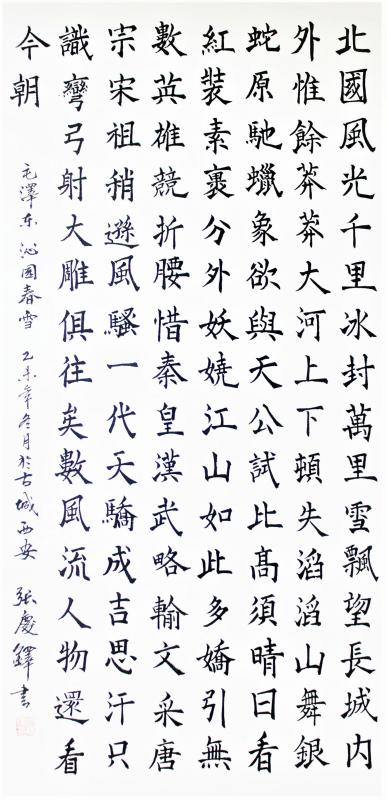 北國風光千里冰封萬里雪飄望長城內
外惟餘莽莽大河上下頓失滔滔山舞銀
蛇原馳蠟象欲與天公試比髙須晴日看
紅裝素裹分外妖嬈江山如此多嬌引無
數英雄競折腰惜秦皇漢武略輸文采唐
宗宋祖稍遜風騷一代天驕成吉思汗只
識彎弓射大雕俱往矣數風流人物還看
今朝
毛澤东 沁園春雪 乙未年冬月於古城西安 張慶鐸書